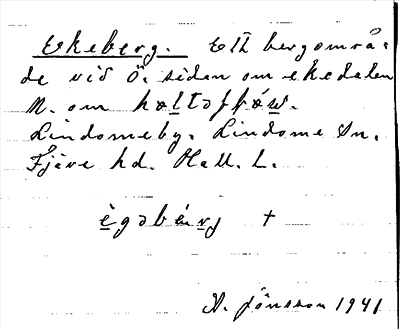 Ekeberg. Ett bergområ=
de vid Ö. sidan om ekedalen
N. om
Lindomeby. Lindome Sn.
Fjäre hd. Hall. L.
ègəbǽrj +
A. Jönsson 1941